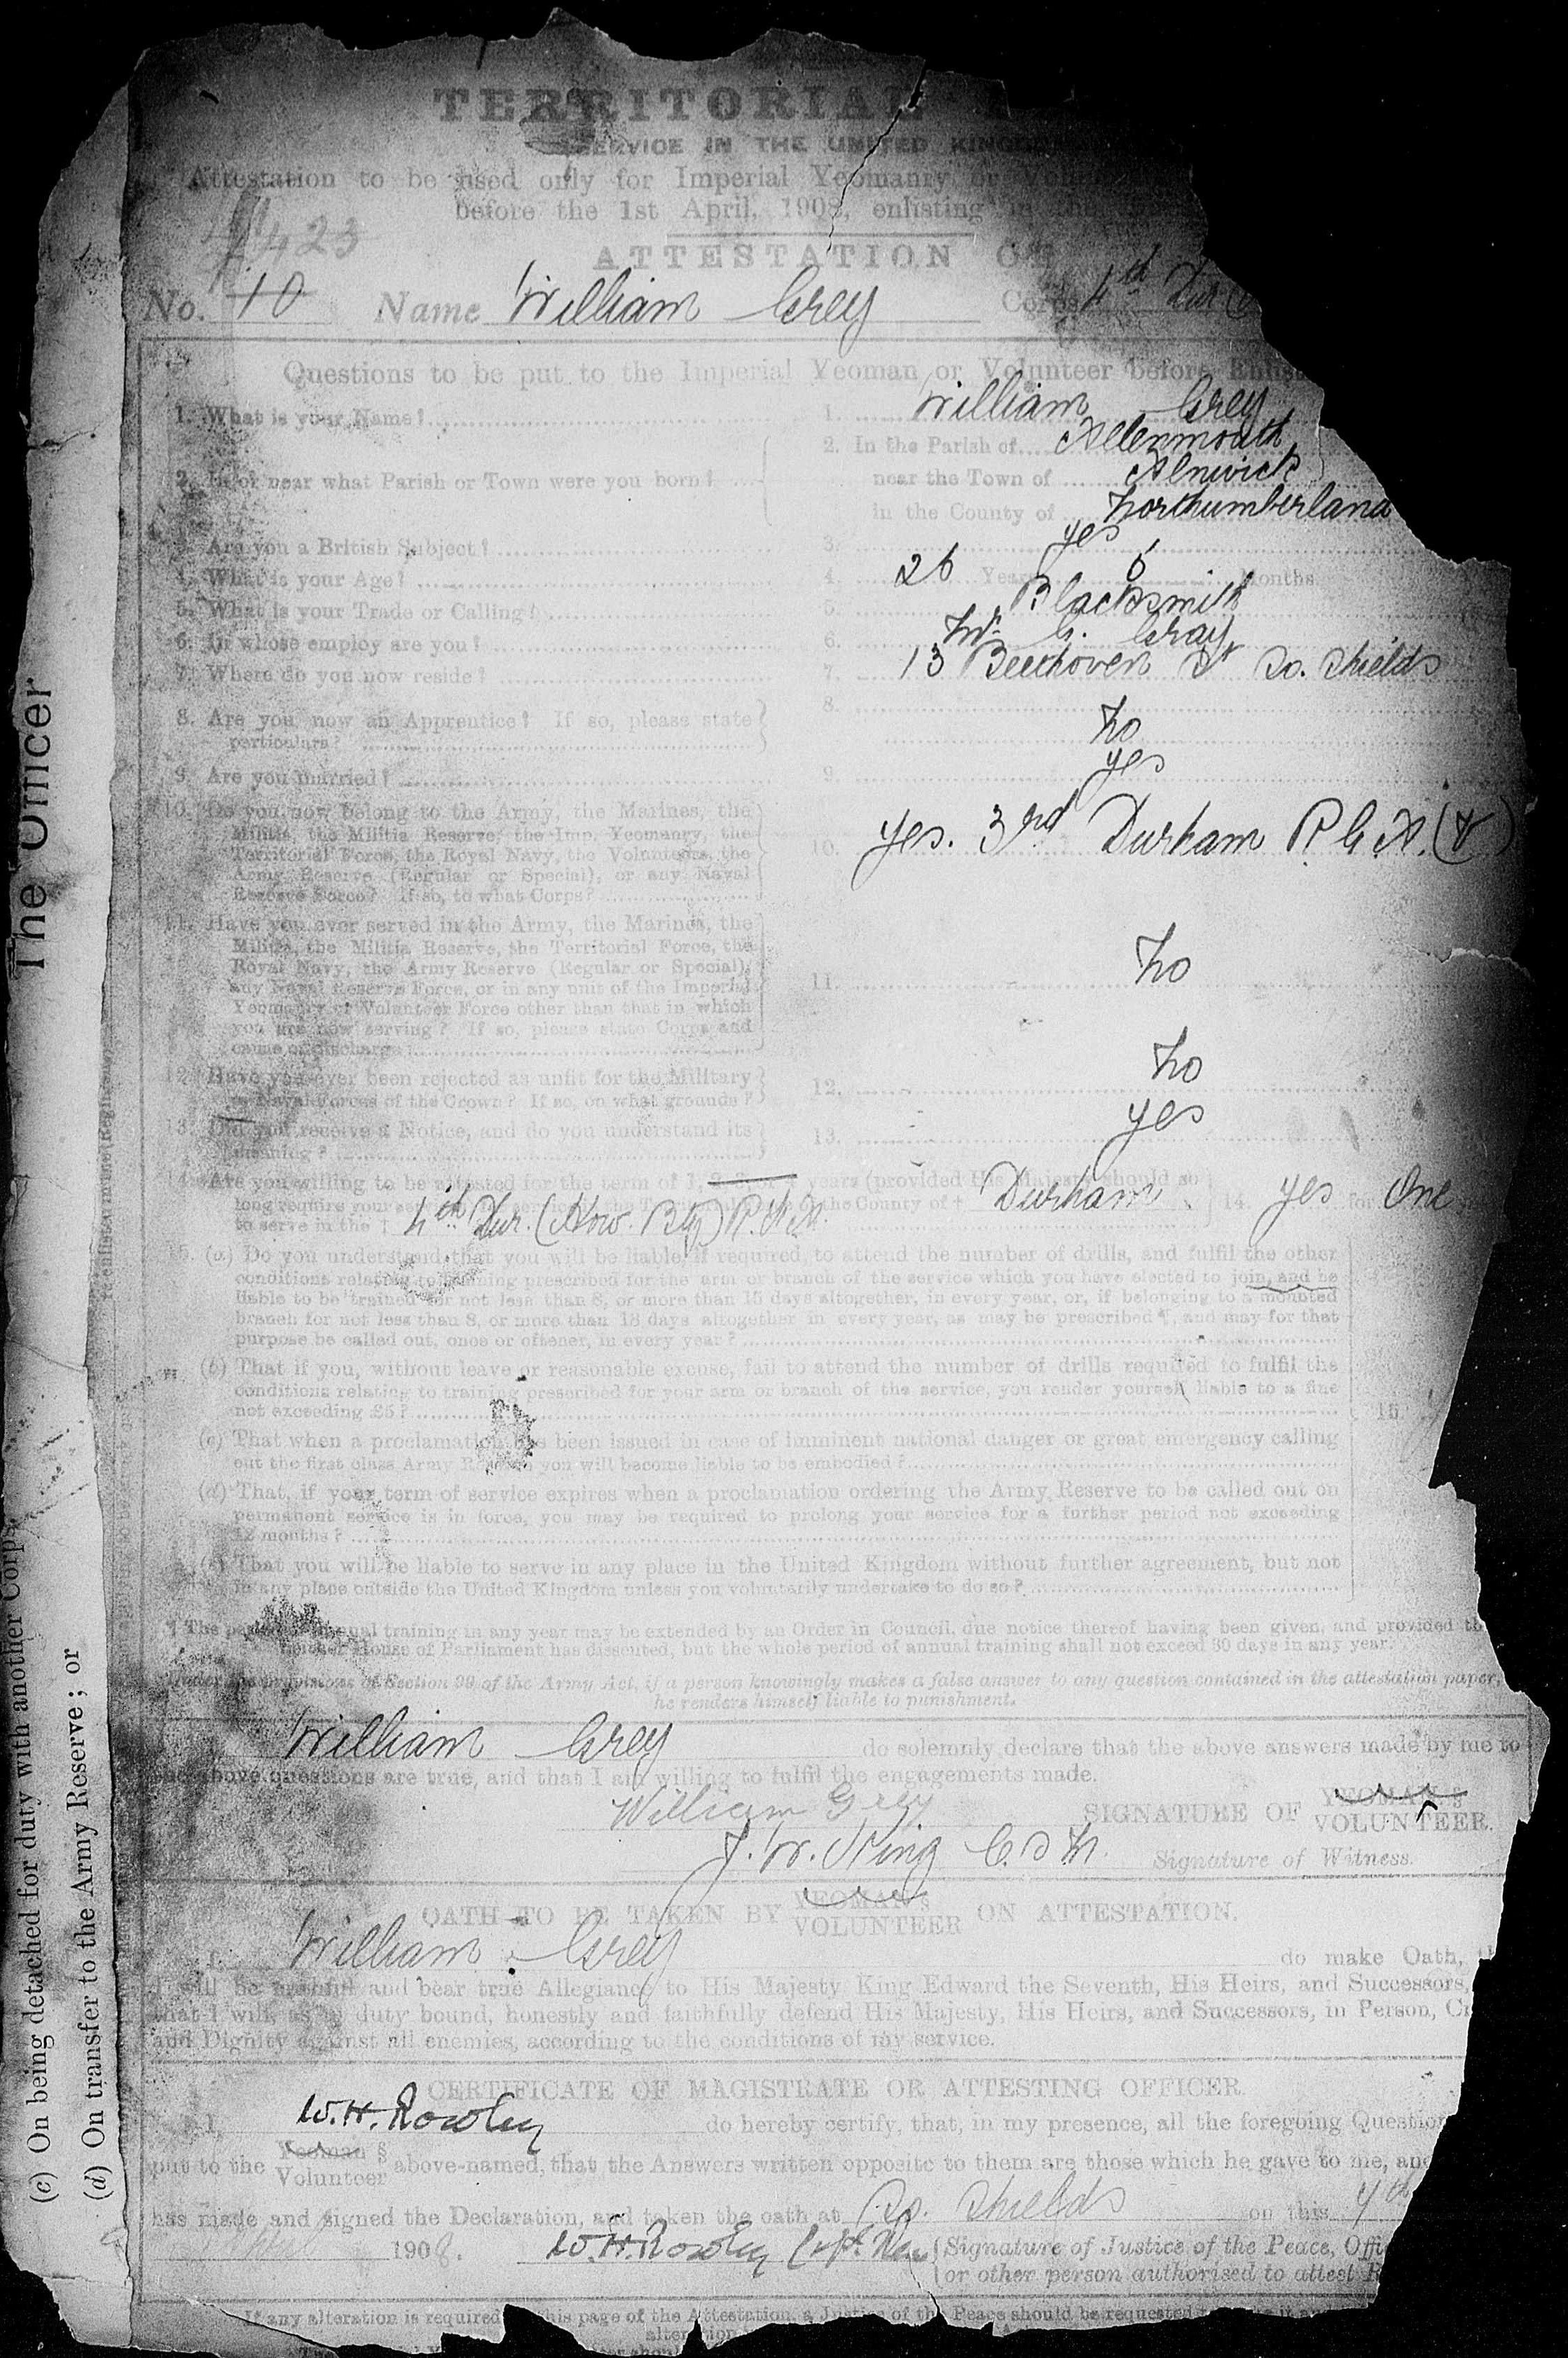 TERRITORIAL
SERVICE IN THE UNITED KINGDOM
Attestation to be used only for Imperial Yeomanry or
before the 1st April, 1908, enlisting in the
423
ATTESTATION OF
No. 10 Name William Grey Corps 4th Dur
Questions to be put to the Imperial Yeoman or Volunteer before
1. What is your Name? 1. William Grey
2. In the Parish of Alenmouth
2. In or near what Parish or Town were you born? near the Town of Alnwick
in the County of Northumberland
3. Are you a British Subject? 3. yes
4. What is your Age? 4. 26 Years 6 Months.
5. What is your Trade or Calling? 5. Blacksmith
6. In whose employ are you? 6. Mr. G. Gray
7. Where do you now reside? 7. 13 Beethoven St So. Shields
8. Are you now an Apprentice? If so, please state 8.
particulars? No
9. Are you married? 9. yes
10. Do you now belong to the Army, the Marines, the
Militia, the Militia Reserve, the Imp. Yeomanry, the
Territorial Force, the Royal Navy, the Volunteers, the 10. yes. 3rd Durham R G A. (V)
Army Reserve (Regular or Special), or any Naval
Reserve Force? If so, to what Corps?
11. Have you ever served in the Army, the Marines, the
Militia, the Militia Reserve, the Territorial Force, the
Royal Navy, the Army Reserve (Regular or Special),
any Naval Reserve Force, or in any unit of the Imperial 11. No
Yeomanry or Volunteer Force other than that in which
you are now serving? If so, please state Corps and
cause of discharge
12. Have you ever been rejected as unfit for the Military
or Naval Forces of the Crown? If so, on what grounds? 12. No
13. Did you receive a Notice, and do you understand its 13. yes
meaning?
14. Are you willing to be attested for the term of 1, 2, 3, or 4 years (provided His Majesty should so
long require your services) for the County of † Durham 14. yes for One
to serve in the 4th Dur. (How. By) R.F.A.
15. (a) Do you understand that you will be liable, if required, to attend the number of drills, and fulfil the other
conditions relating to training prescribed for the arm or branch of the service which you have elected to join, and be
liable to be trained for not less than 8, or more than 15 days altogether, in every year, or, if belonging to a mounted
branch for not less than 8, or more than 18 days altogether in every year, as may be prescribed¶, and may for that
purpose be called out, once or oftener, in every year?
(b) That if you, without leave or reasonable excuse, fail to attend the number of drills required to fulfil the
conditions relating to training prescribed for your arm or branch of the service, you render yourself liable to a fine
not exceeding £5? 15.
(c) That when a proclamation has been issued in case of imminent national danger or great emergency calling
out the first class Army Reserve you will become liable to be embodied?
(d) That, if your term of service expires when a proclamation ordering the Army Reserve to be called out on
permanent service is in force, you may be required to prolong your service for a further period not exceeding
12 months?
(e) That you will be liable to serve in any place in the United Kingdom without further agreement, but not
in any place outside the United Kingdom unless you voluntarily undertake to do so?
¶ The period of annual training in any year may be extended by an Order in Council, due notice thereof having been given, and provided
neither House of Parliament has dissented, but the whole period of annual training shall not exceed 30 days in any year.
Under the provisions of Section 99 of the Army Act, if a person knowingly makes a false answer to any question contained in the attestation paper,
he renders himself liable to punishment.
William Grey do solemnly declare that the above answers made by me to
above questions are true, and that I am willing to fulfil the engagements made.
William Grey SIGNATURE OF YEOMAN § VOLUNTEER.
J. W. King C. S M. Signature of Witness.
OATH TO BE TAKEN BY YEOMAN § VOLUNTEER ON ATTESTATION.
I, William Grey do make Oath,
I will be faithful and bear true Allegiance to His Majesty King Edward the Seventh, His Heirs, and Successors,
that I will, as in duty bound, honestly and faithfully defend His Majesty, His Heirs, and Successors, in Person,
and Dignity against all enemies, according to the conditions of my service.
CERTIFICATE OF MAGISTRATE OR ATTESTING OFFICER.
I, W. H. Rowley do hereby certify, that, in my presence, all the foregoing
put to the Yeoman § Volunteer above-named, that the Answers written opposite to them are those which he gave to me,
has made and signed the Declaration, and taken the oath at So. Shields on this 7th
April 1908. W. H. Rowley Capt. {Signature of Justice of the Peace,
or other person authorised to attest
If any alteration is required this page of the Attestation, a of the Peace should be requested
The Officer
(c) On being detached for duty with another Corps
(d) On transfer to the Army Reserve; or